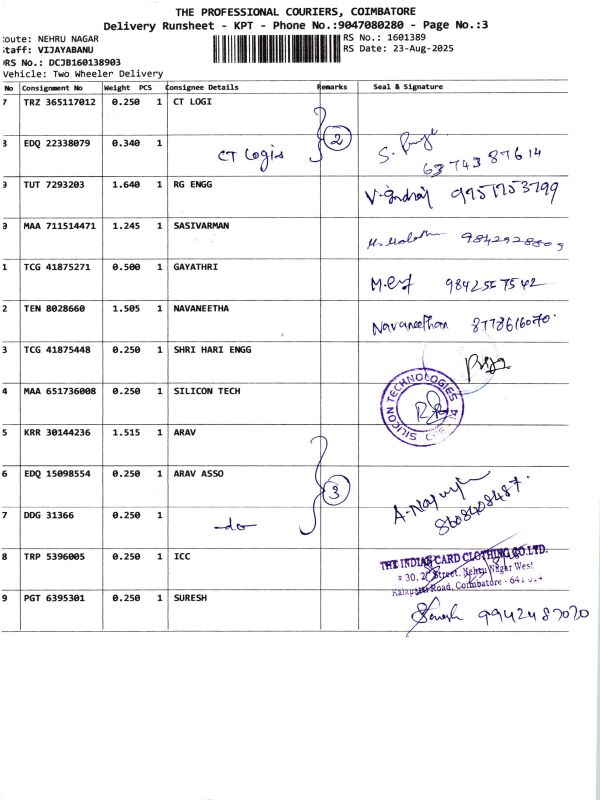 THE PROFESSIONAL COURIERS, COIMBATORE
Delivery Runsheet - KPT - Phone No.:9047080280 - Page No.:3
oute: NEHRU NAGAR
taff: VIJAYABANU
RS No.: DCJB160138903
Vehicle: Two Wheeler Delivery
RS No.: 1601389
RS Date: 23-Aug-2025
No Consignment No Weight PCS Consignee Details Remarks Seal & Signature
7 TRZ 365117012 0.250 1 CT LOGI
8 EDQ 22338079 0.340 1 CT Logis 2 S. 63743 87614
9 TUT 7293203 1.640 1 RG ENGG 9951753799
0 MAA 711514471 1.245 1 SASIVARMAN 9842928809
1 TCG 41875271 0.500 1 GAYATHRI 9842567542
2 TEN 8028660 1.505 1 NAVANEETHA Navaneethan 8778616070.
3 TCG 41875448 0.250 1 SHRI HARI ENGG
4 MAA 651736008 0.250 1 SILICON TECH SILICON TECHNOLOGIES
5 KRR 30144236 1.515 1 ARAV
6 EDQ 15098554 0.250 1 ARAV ASSO 3 8608408487.
7 DDG 31366 0.250 1 -do-
8 TRP 5396005 0.250 1 ICC
THE INDIAN CARD CLOTHING CO.LTD.
# 30, 2 Street, Nehru Nagar West
Kalapatti Road, Coimbatore - 641 014
9 PGT 6395301 0.250 1 SURESH Suresh 9942487020